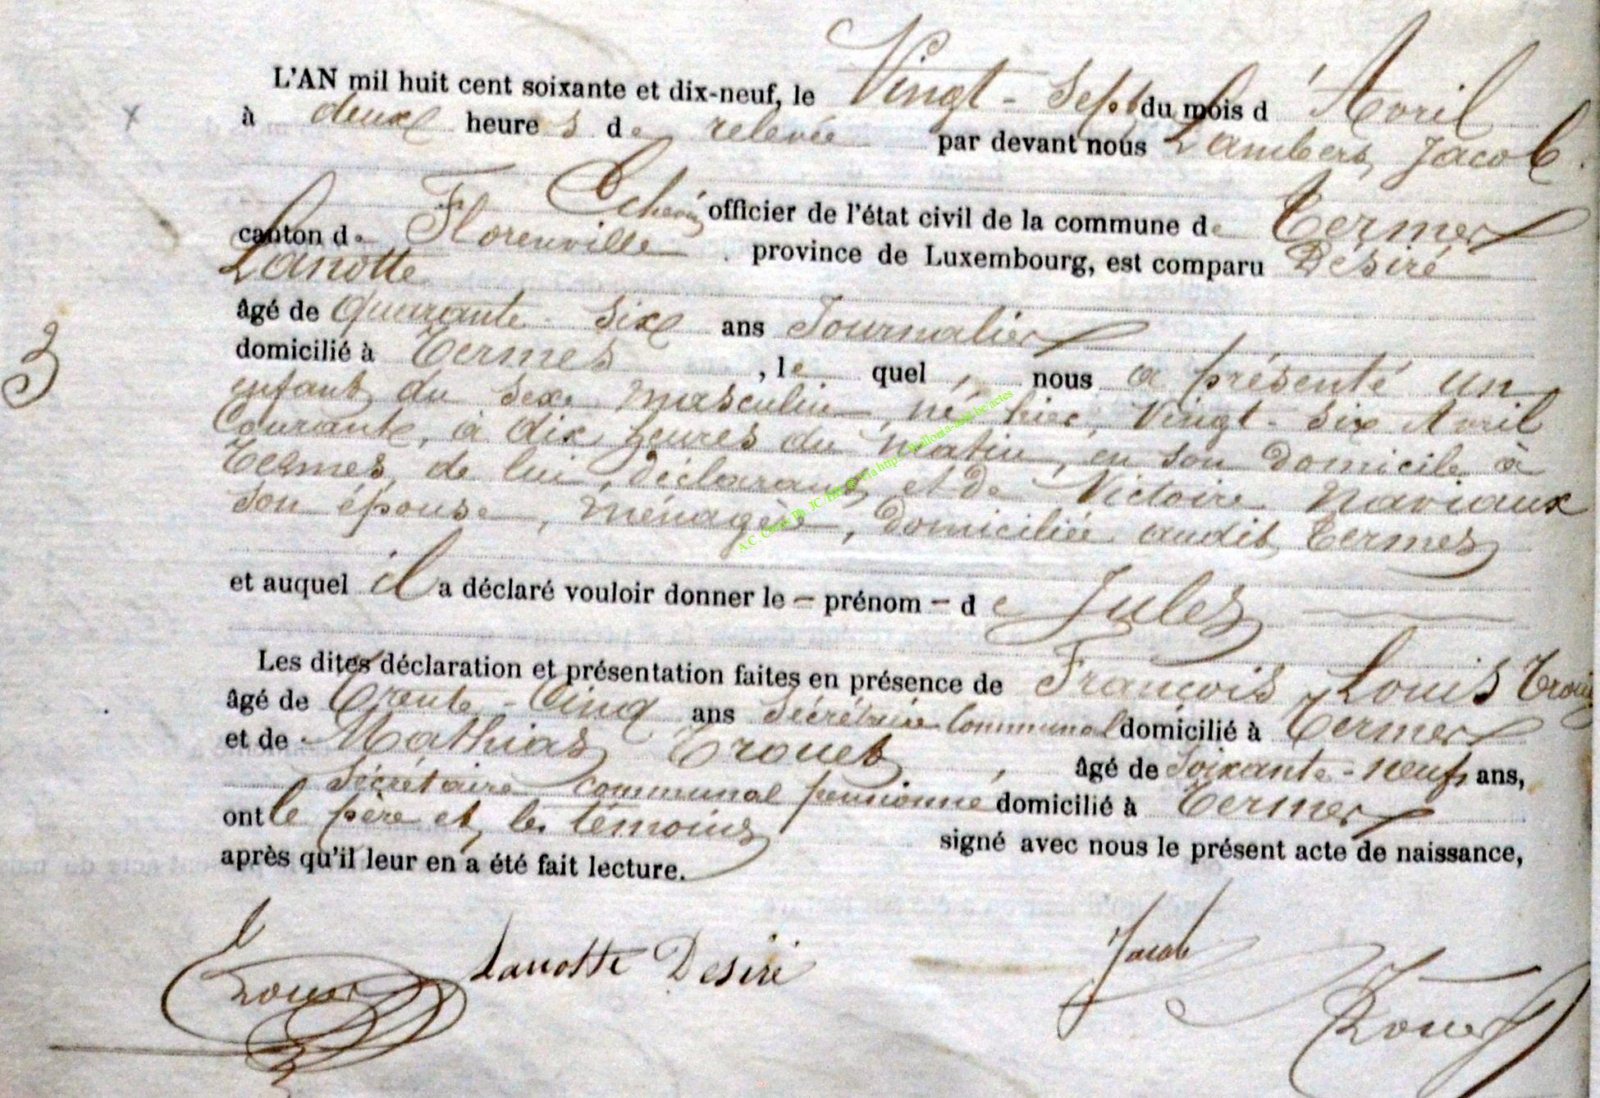 L'AN mil huit cent soixante et dix-neuf, le Vingt-Sept du mois d'Avril
à deux heures de relevée par devant nous Lambers Jacob.
Echevin officier de l'état civil de la commune de Termes
canton de Florenville province de Luxembourg, est comparu Désiré
Lanotte
âgé de Quarante-Six ans Journalier
domicilié à Termes, le quel, nous a présenté un
3
enfant du sexe masculin, né hier, Vingt-six Avril
Courant, à dix heures du matin, en son domicile à
Termes, de lui, déclarant, et de Victoire Naviaux
son épouse, ménagère, domiciliée audit Termes
et auquel il a déclaré vouloir donner le - prénom - de Jules
Les dites déclaration et présentation faites en présence de François Louis
âgé de Trente-Cinq ans Sécrétaire Communal domicilié à Termes
et de Mathias Trouet, âgé de Soixante-neuf ans,
Sécrétaire communal pensionné domicilié à Termes
ont le père et les témoins signé avec nous le présent acte de naissance,
après qu'il leur en a été fait lecture.
Lanotte Desiré Jacob